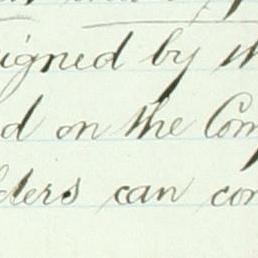 igned by th
d on the Com
lders can con